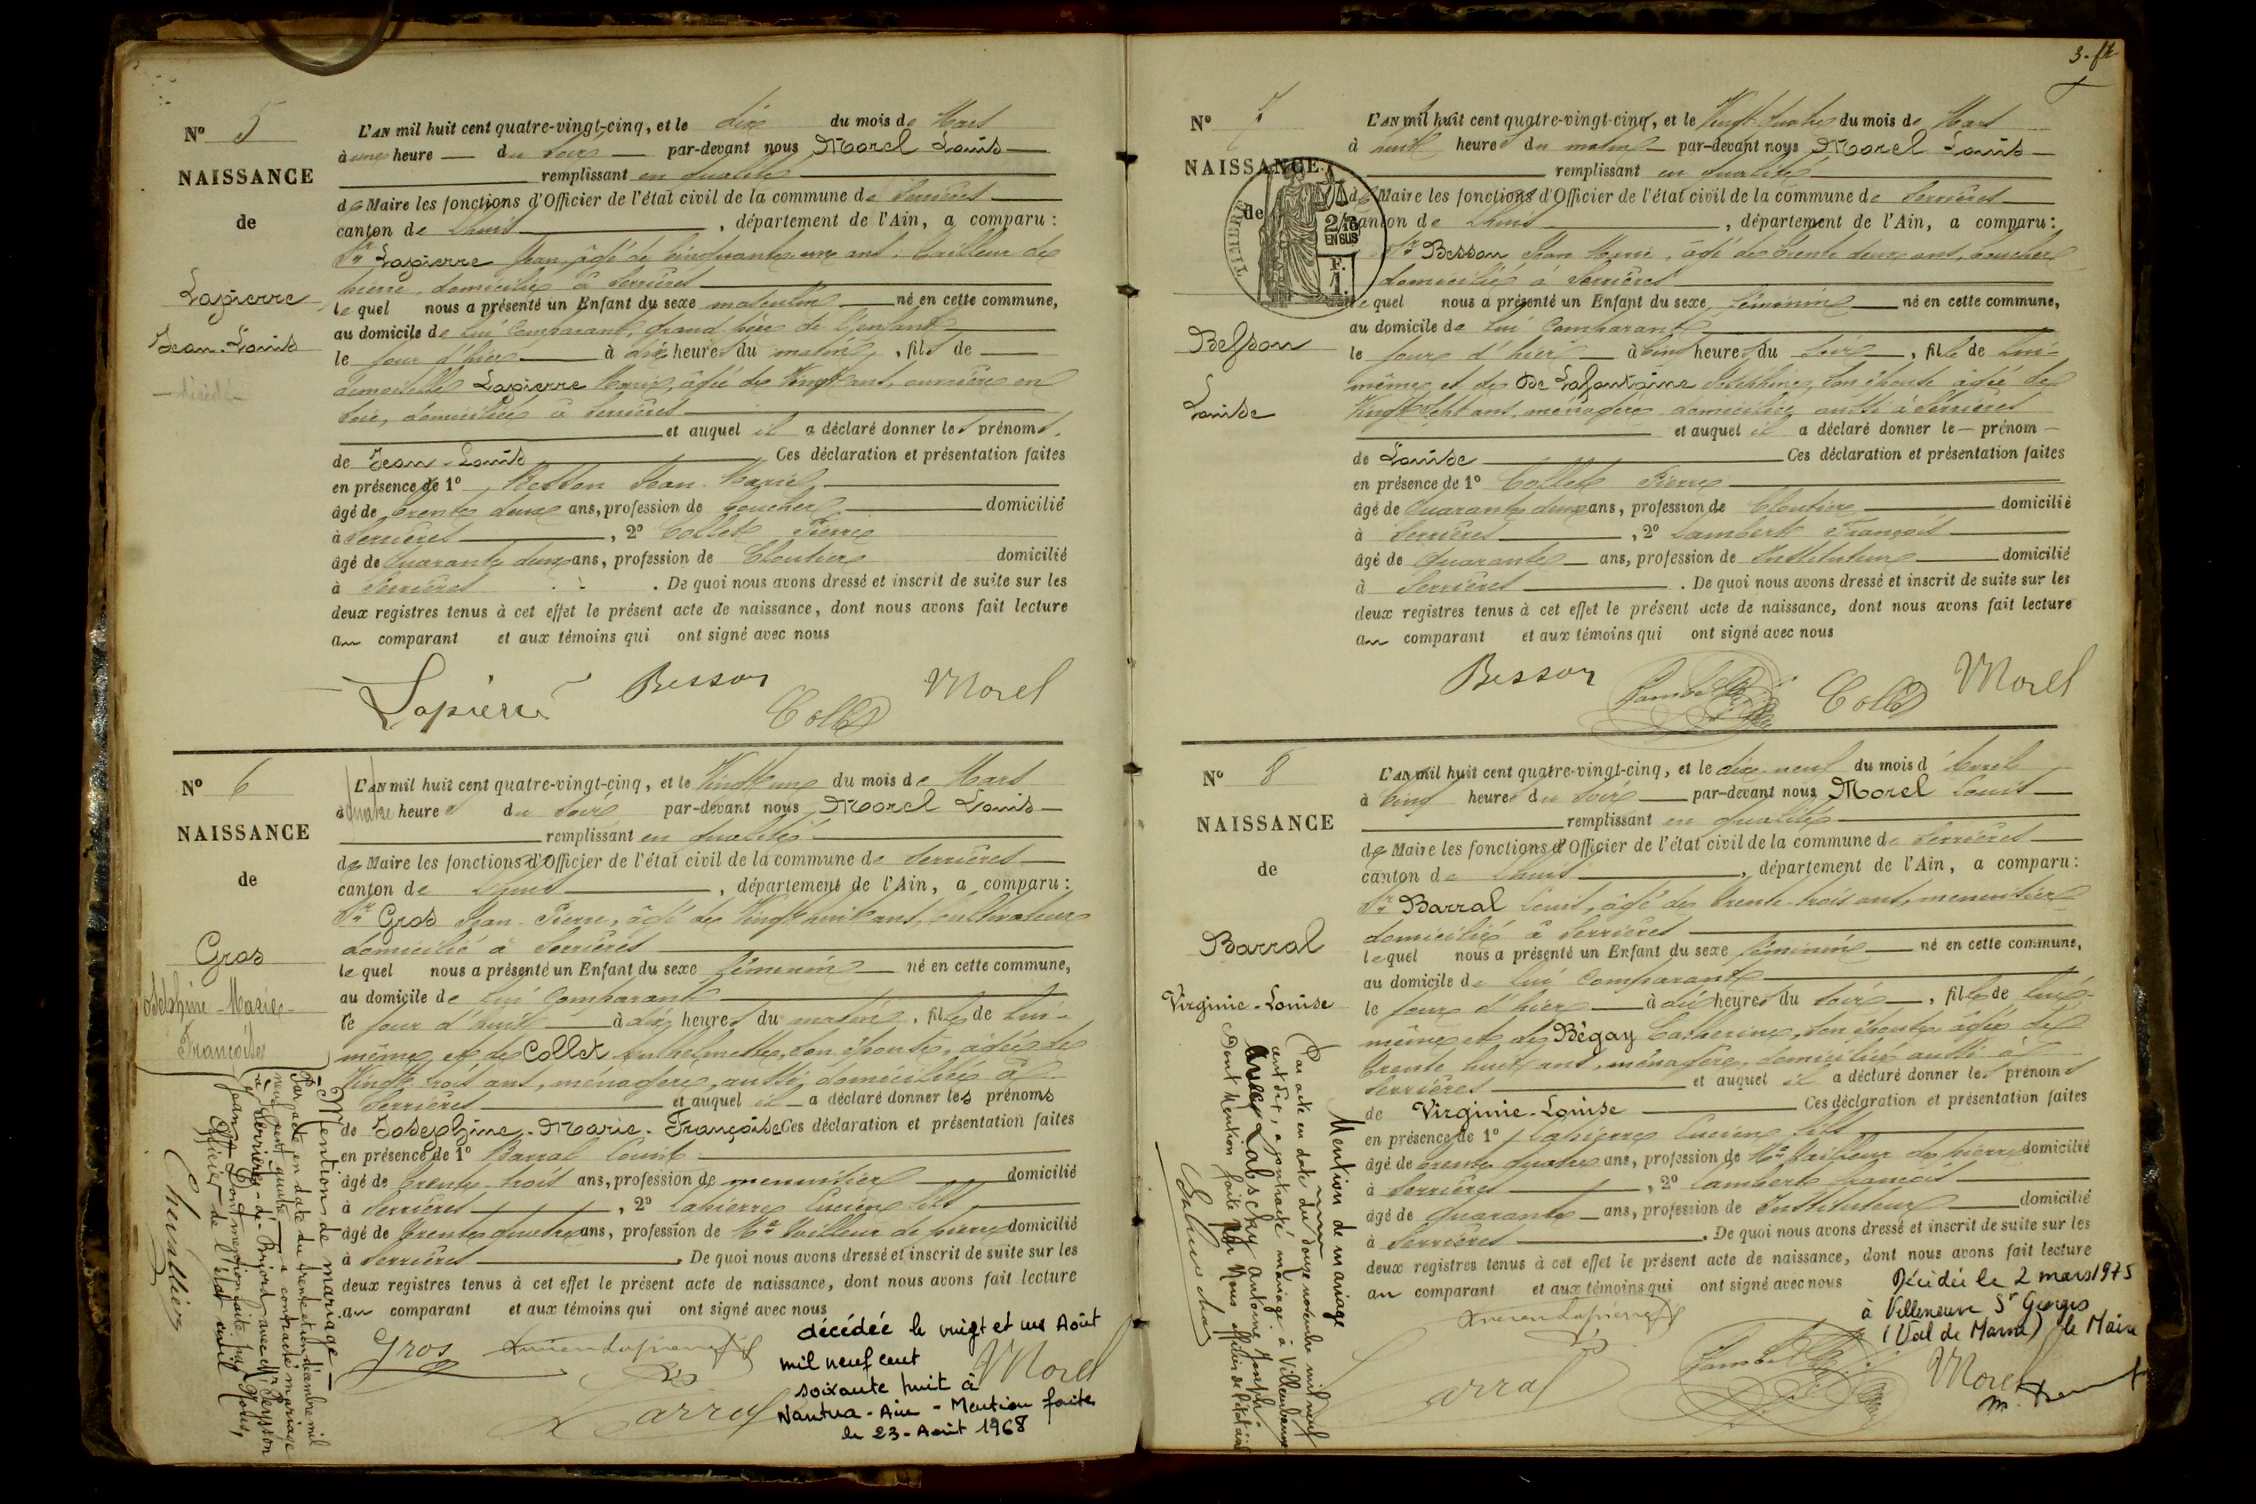 3. ft
N° 5
NAISSANCE
de
Lapierre
Jean-Louis
décédé
L'AN mil huit cent quatre-vingt-cinq, et le dix du mois de Mars
à une heure du soir par-devant nous Morel Louis
remplissant en qualité
de Maire les fonctions d'Officier de l'état civil de la commune de Serrières
canton de Lhuis, département de l'Ain, a comparu :
Sr Lapierre Jean, âgé de cinquante un ans, tailleur de
pierre, domicilié à Serrières
lequel nous a présenté un Enfant du sexe masculin né en cette commune,
au domicile de lui comparant, grand père de l'enfant
le jour d'hier à dix heures du matin, fils de
demoiselle Lapierre Marie, âgée de Vingt ans, ouvrière en
soie, domiciliée à Serrières
et auquel il a déclaré donner les prénoms
de Jean-Louis Ces déclaration et présentation faites
en présence de 1° Besson Jean Marie
âgé de trente deux ans, profession de boucher domicilié
à Serrières, 2° Collet Pierre
âgé de Quarante deux ans, profession de Cloutier domicilié
à Serrières. De quoi nous avons dressé et inscrit de suite sur les
deux registres tenus à cet effet le présent acte de naissance, dont nous avons fait lecture
au comparant et aux témoins qui ont signé avec nous
Lapierre Besson Collet Morel
N° 6
NAISSANCE
de
Gros
Joséphine-Marie-
Françoise
L'AN mil huit cent quatre-vingt-cinq, et le Vingt un du mois de Mars
à quatre heures du soir par-devant nous Morel Louis
remplissant en qualité
de Maire les fonctions d'Officier de l'état civil de la commune de Serrières
canton de Lhuis, département de l'Ain, a comparu :
Sr Gros Jean-Pierre, âgé de Vingt huit ans, cultivateur
domicilié à Serrières
lequel nous a présenté un Enfant du sexe féminin né en cette commune,
au domicile de lui comparant
le jour d'huit à dix heures du matin, fille de lui-
même et de Collet Anthelmette, son épouse, âgée de
Vingt trois ans, ménagère, aussi domiciliée à
Serrières et auquel il a déclaré donner les prénoms
de Joséphine-Marie-Françoise Ces déclaration et présentation faites
en présence de 1° Barral Louis
âgé de trente trois ans, profession de menuisier domicilié
à Serrières, 2° Lapierre Lucien fils
âgé de trente quatre ans, profession de Md Tailleur de pierre domicilié
à Serrières. De quoi nous avons dressé et inscrit de suite sur les
deux registres tenus à cet effet le présent acte de naissance, dont nous avons fait lecture
au comparant et aux témoins qui ont signé avec nous
Gros Lucien Lapierre fils Barral Morel
décédée le vingt et un Août
mil neuf cent
soixante huit à
Nantua - Ain - Mention faite
le 23 - Août 1968
Mention de mariage
Par acte en date du trente et un décembre mil
neuf cent quatre a contracté mariage
à Serrières-de-Briord avec Mr Peysson
Jean Dont mention faite par Nous,
Officier de l'état civil
Chevallier
N° 7
NAISSANCE
de
TIMBRE
2/10
EN SUS
F.
1
Besson
Louise
L'AN mil huit cent quatre-vingt-cinq, et le Vingt quatre du mois de Mars
à huit heures du matin par-devant nous Morel Louis
remplissant en qualité
de Maire les fonctions d'Officier de l'état civil de la commune de Serrières
canton de Lhuis, département de l'Ain, a comparu :
Sr Besson Jean Marie, âgé de trente deux ans, boucher
domicilié à Serrières
lequel nous a présenté un Enfant du sexe féminin né en cette commune,
au domicile de lui comparant
le jour d'hier à cinq heures du soir, fille de lui-
même et de De Lafontaine Joséphine, son épouse âgée de
Vingt sept ans, ménagère domiciliée aussi à Serrières
et auquel il a déclaré donner le prénom
de Louise Ces déclaration et présentation faites
en présence de 1° Collet Pierre
âgé de Quarante deux ans, profession de Cloutier domicilié
à Serrières, 2° Lambert François
âgé de Quarante ans, profession de Instituteur domicilié
à Serrières. De quoi nous avons dressé et inscrit de suite sur les
deux registres tenus à cet effet le présent acte de naissance, dont nous avons fait lecture
au comparant et aux témoins qui ont signé avec nous
Besson Lambert Collet Morel
N° 8
NAISSANCE
de
Barral
Virginie-Louise
L'AN mil huit cent quatre-vingt-cinq, et le dix neuf du mois d'Avril
à cinq heures du soir par-devant nous Morel Louis
remplissant en qualité
de Maire les fonctions d'Officier de l'état civil de la commune de Serrières
canton de Lhuis, département de l'Ain, a comparu :
Sr Barral Louis, âgé de trente trois ans, menuisier
domicilié à Serrières
lequel nous a présenté un Enfant du sexe féminin né en cette commune,
au domicile de lui comparant
le jour d'hier à dix heures du soir, fille de lui-
même et de Bégay Catherine, son épouse, âgée de
trente huit ans, ménagère, domiciliée aussi à
Serrières et auquel il a déclaré donner les prénoms
de Virginie-Louise Ces déclaration et présentation faites
en présence de 1° Lapierre Lucien fils
âgé de trente quatre ans, profession de Md Tailleur de pierre domicilié
à Serrières, 2° Lambert François
âgé de quarante ans, profession de Instituteur domicilié
à Serrières. De quoi nous avons dressé et inscrit de suite sur les
deux registres tenus à cet effet le présent acte de naissance, dont nous avons fait lecture
au comparant et aux témoins qui ont signé avec nous
Lucien Lapierre fils Barral Lambert Morel
Décédée le 2 mars 1975
à Villeneuve St Georges
(Val de Marne) le Maire
Mention de mariage
Par acte en date du douze novembre mil neuf
cent dix, a contracté mariage à Villeurbanne
avec Labschy Antoine Joseph.
Dont Mention faite par Nous officier de l'état civil